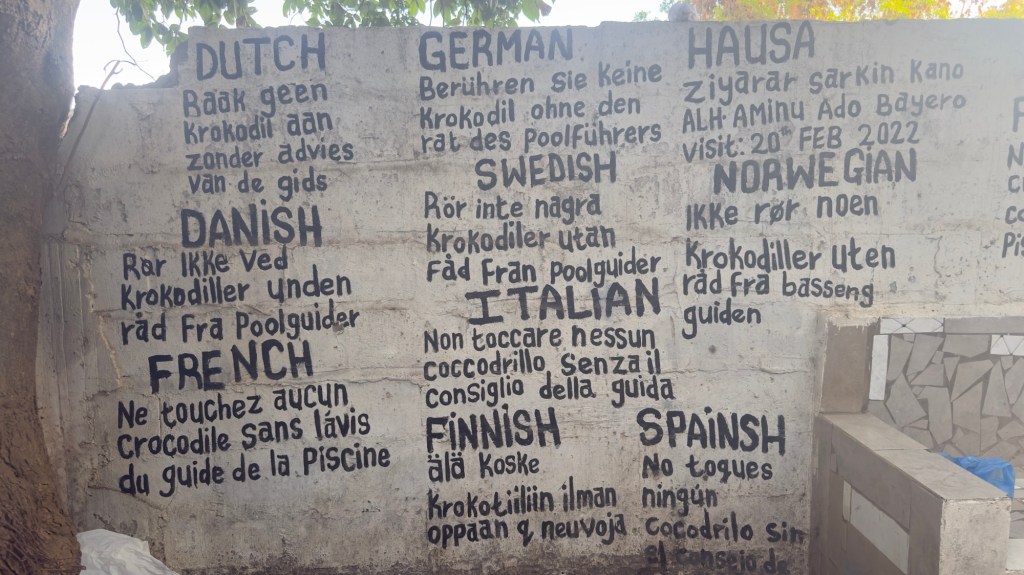 DUTCH
Raak geen
Krokodil aan
zonder advies
van de gids
DANISH
Rar IKKe ved
Krokodiller unden
råd Fra Poolguider
FRENCH
Ne touchez aucun
Crocodile sans lávis
du guide de la Piscine
GERMAN
Berühren sie Keine
Krokodil ohne den
rat des Poolführers
SWEDISH
Rör inte nagra
Krokodiler utan
råd Från poolguider
ITALIAN
Non toccare nessun
coccodrillo senza il
consiglio della guida
FINNISH
älä Koske
Krokotiiliin ilman
oppaan q neuvoja
HAUSA
Ziyarar sarkin Kano
ALH Aminu Ado Bayero
visit: 20th FEB 2022
NORWEGIAN
IKKe rør noen
Krokodiller uten
råd fra basseng
guiden
SPAINSH
No toques
ningún
cocodrilo sin
el consejo de